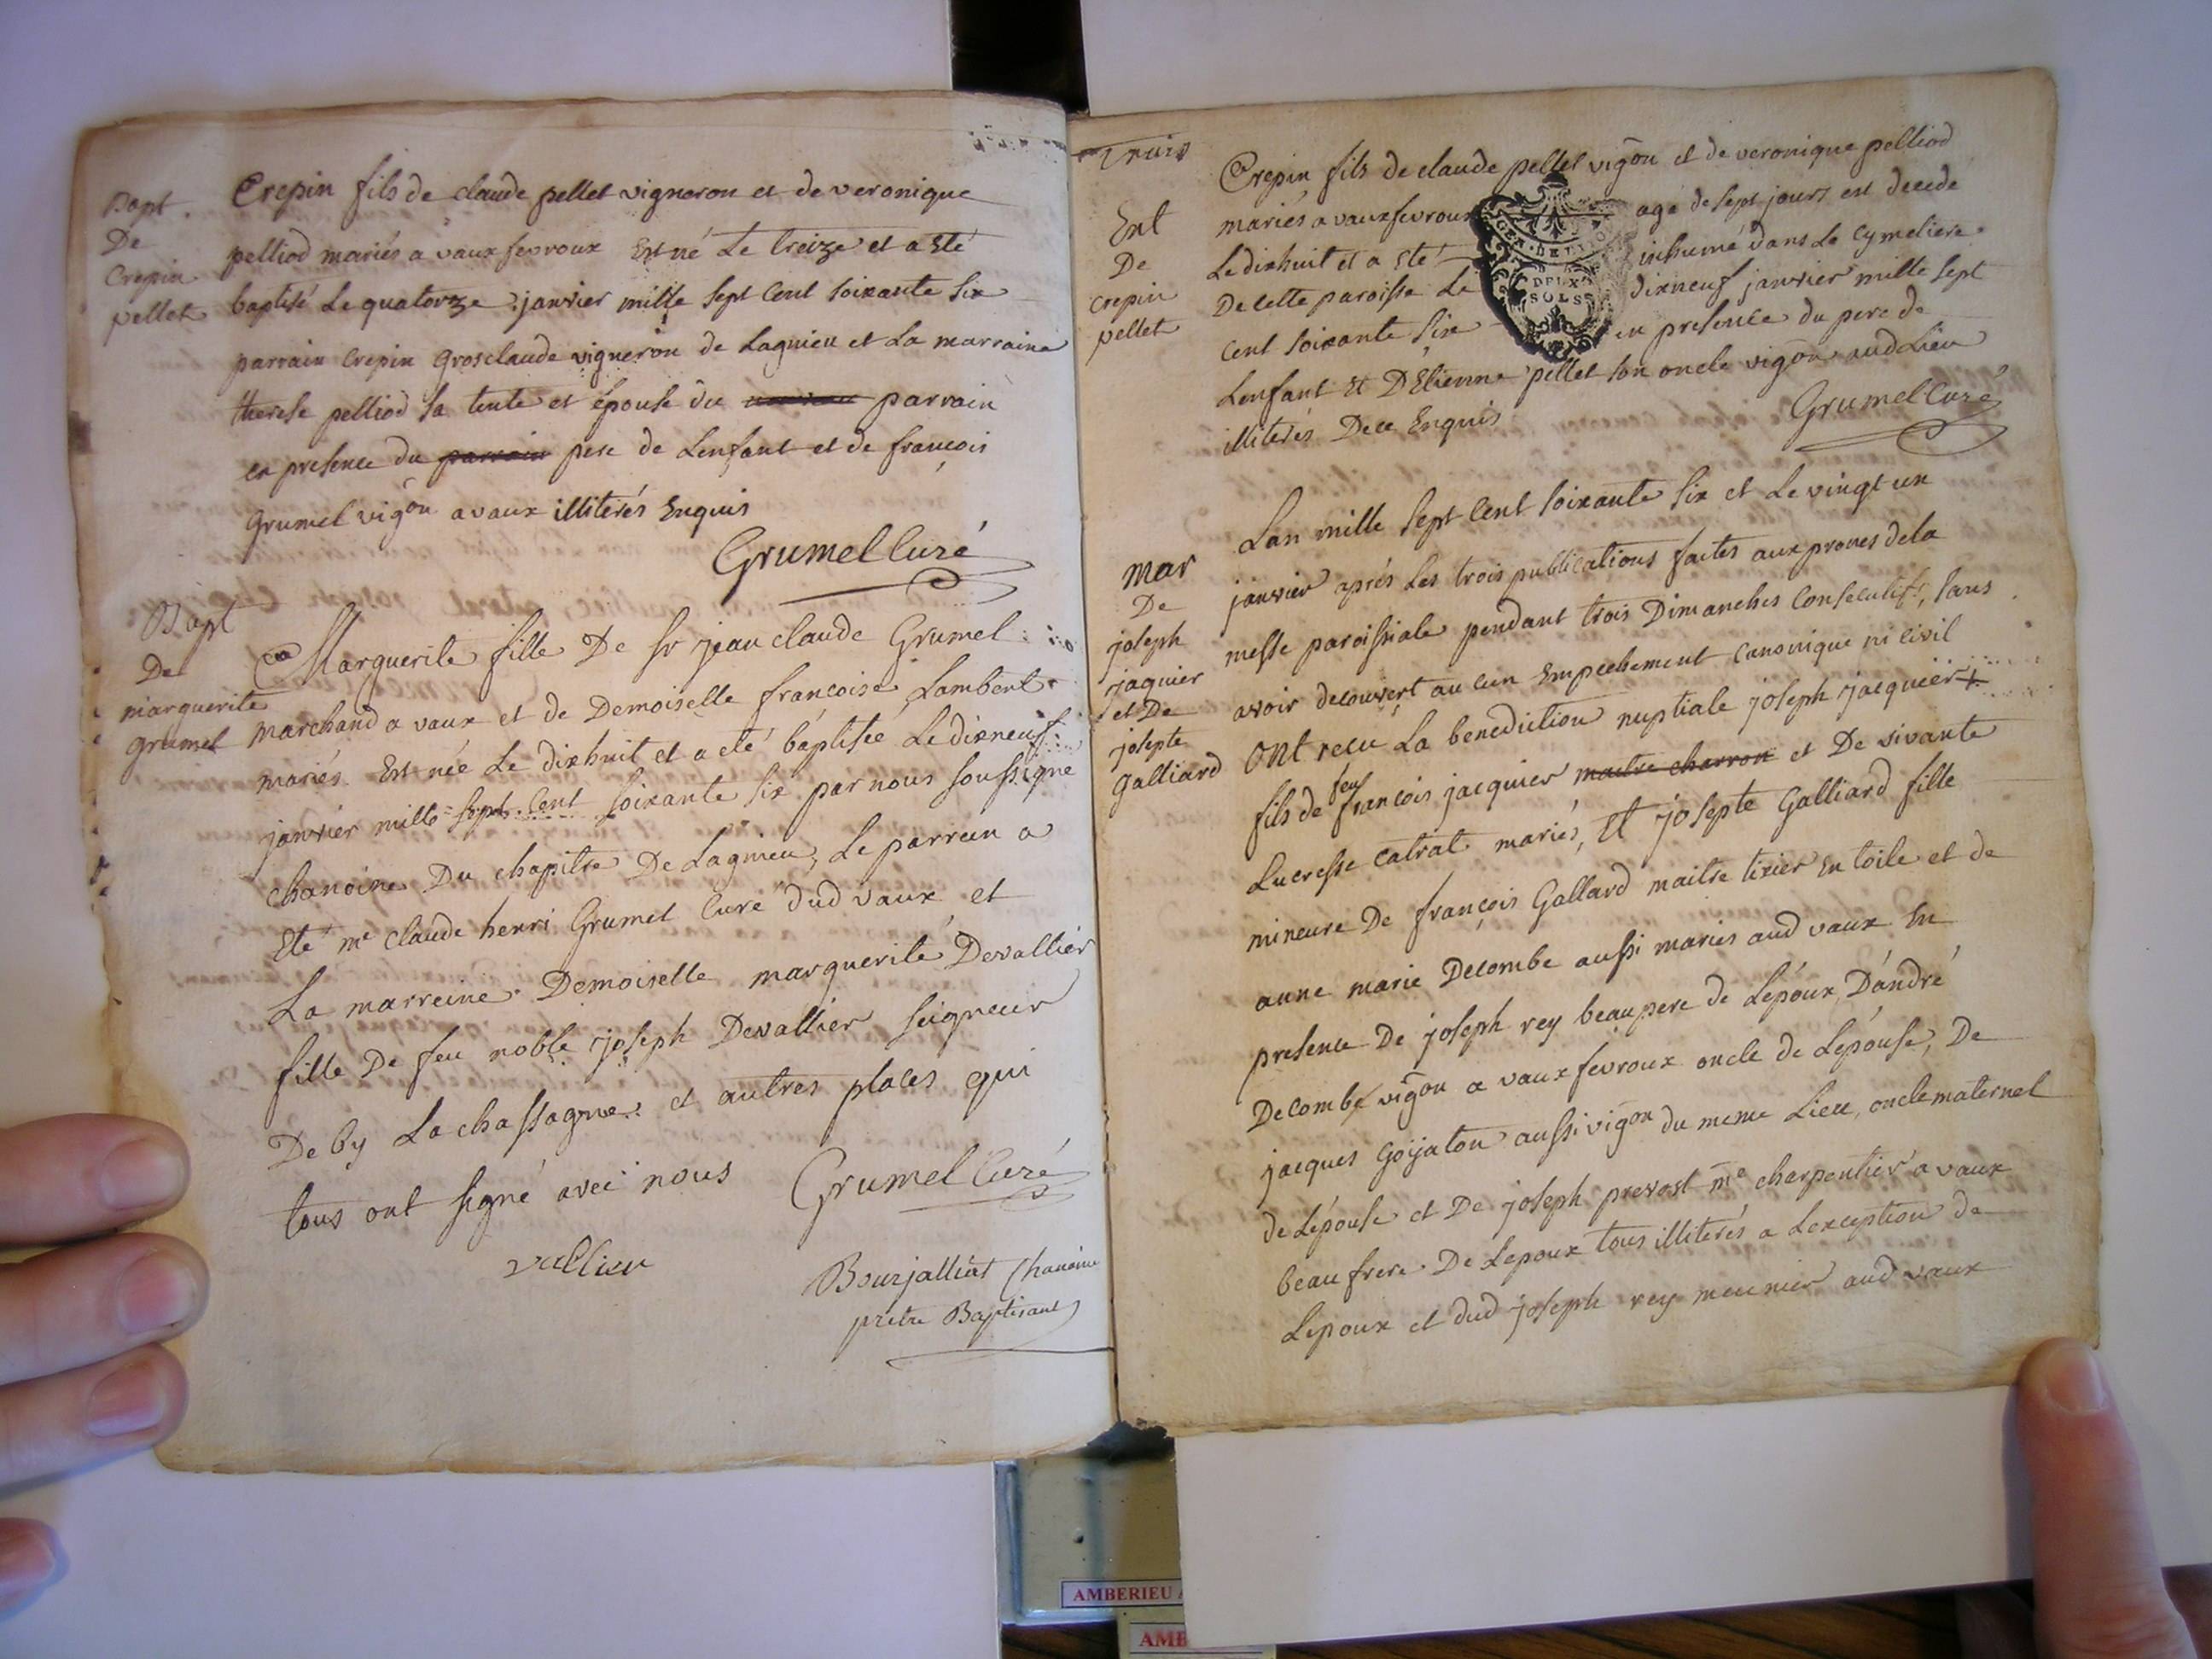 Bapt.
De
Crepin
pellet
Crepin fils de claude pellet vigneron et de veronique
pelliod mariés a vaux fevroux Est né Le treize et a Eté
baptisé Le quatorze janvier mille sept Cent soixante six
parrain Crepin Grosclaude vigneron de Lagnieu et La marraine
therese pelliod sa tente et épouse du parrain
en presence du parrain pere de Lenfant et de francois
Grumel vigõn a vaux illiterés Enquis
Grumel Curé
Bapt
De
marguerite
grumel
Marguerite fille De sr jean claude Grumel
marchand a vaux et de Demoiselle francoise Lambert
mariés Est née Le dixhuit et a eté baptisée Le dixneuf
janvier mille sept Cent soixante six par nous soussigné
chanoine Du chapitre De Lagnieu, Le parrein a
Eté me claude henri Grumel Curé dud vaux et
La marreine Demoiselle marguerite Devallier
fille De feu noble joseph Devallier seigneur
De by La chassagne et autres places qui
tous ont signé avec nous Grumel Curé
vallier
Bourjallliat Chanoine
pretre Baptisant
Trois
Ent
De
crepin
pellet
Crepin fils de claude pellet vigõn et de veronique pelliod
mariés a vaux fevroux agé de sept jours est decedé
Le dixhuit et a eté inhumé dans Le Cymetiere
De cette paroisse Le dixneuf janvier mille sept
cent soixante six en presence du pere de
Lenfant Et D'Etienne pellet son oncle vigõn aud Lieu
illiterés De ce Enquis
Grumel Curé
GEN. DE
DEUX
SOLS
mar
De
joseph
jaquier
et De
josepte
Galliard
Lan mille sept Cent soixante six et Le vingt un
janvier aprés Les trois publications faites aux prones dela
messe paroissiale pendant trois Dimanches Consecutifs, sans
avoir decouvert aucun Empechement Canonique ni Civil
ONt recu La benediction nuptiale joseph jacquier +
fils de feu francois jacquier maitre charron et De vivante
Lucresse Catrat mariés, Et josepte Galliard fille
mineure De françois Gallard maitre tixier En toile et de
anne marie Decombe aussi mariés aud vaux En
presence De joseph rey beaupere de Lépoux, D'andré
Decombe vigõn a vaux fevroux oncle de Lépouse, De
jacques Goyaton aussi vigõn du meme Lieu, oncle maternel
de Lépouse et De joseph prevost me charpentier a vaux
beau frere De Lepoux tous illiterés a Lexception de
Lepoux et dud joseph rey meunier aud vaux
AMBERIEU
AMB